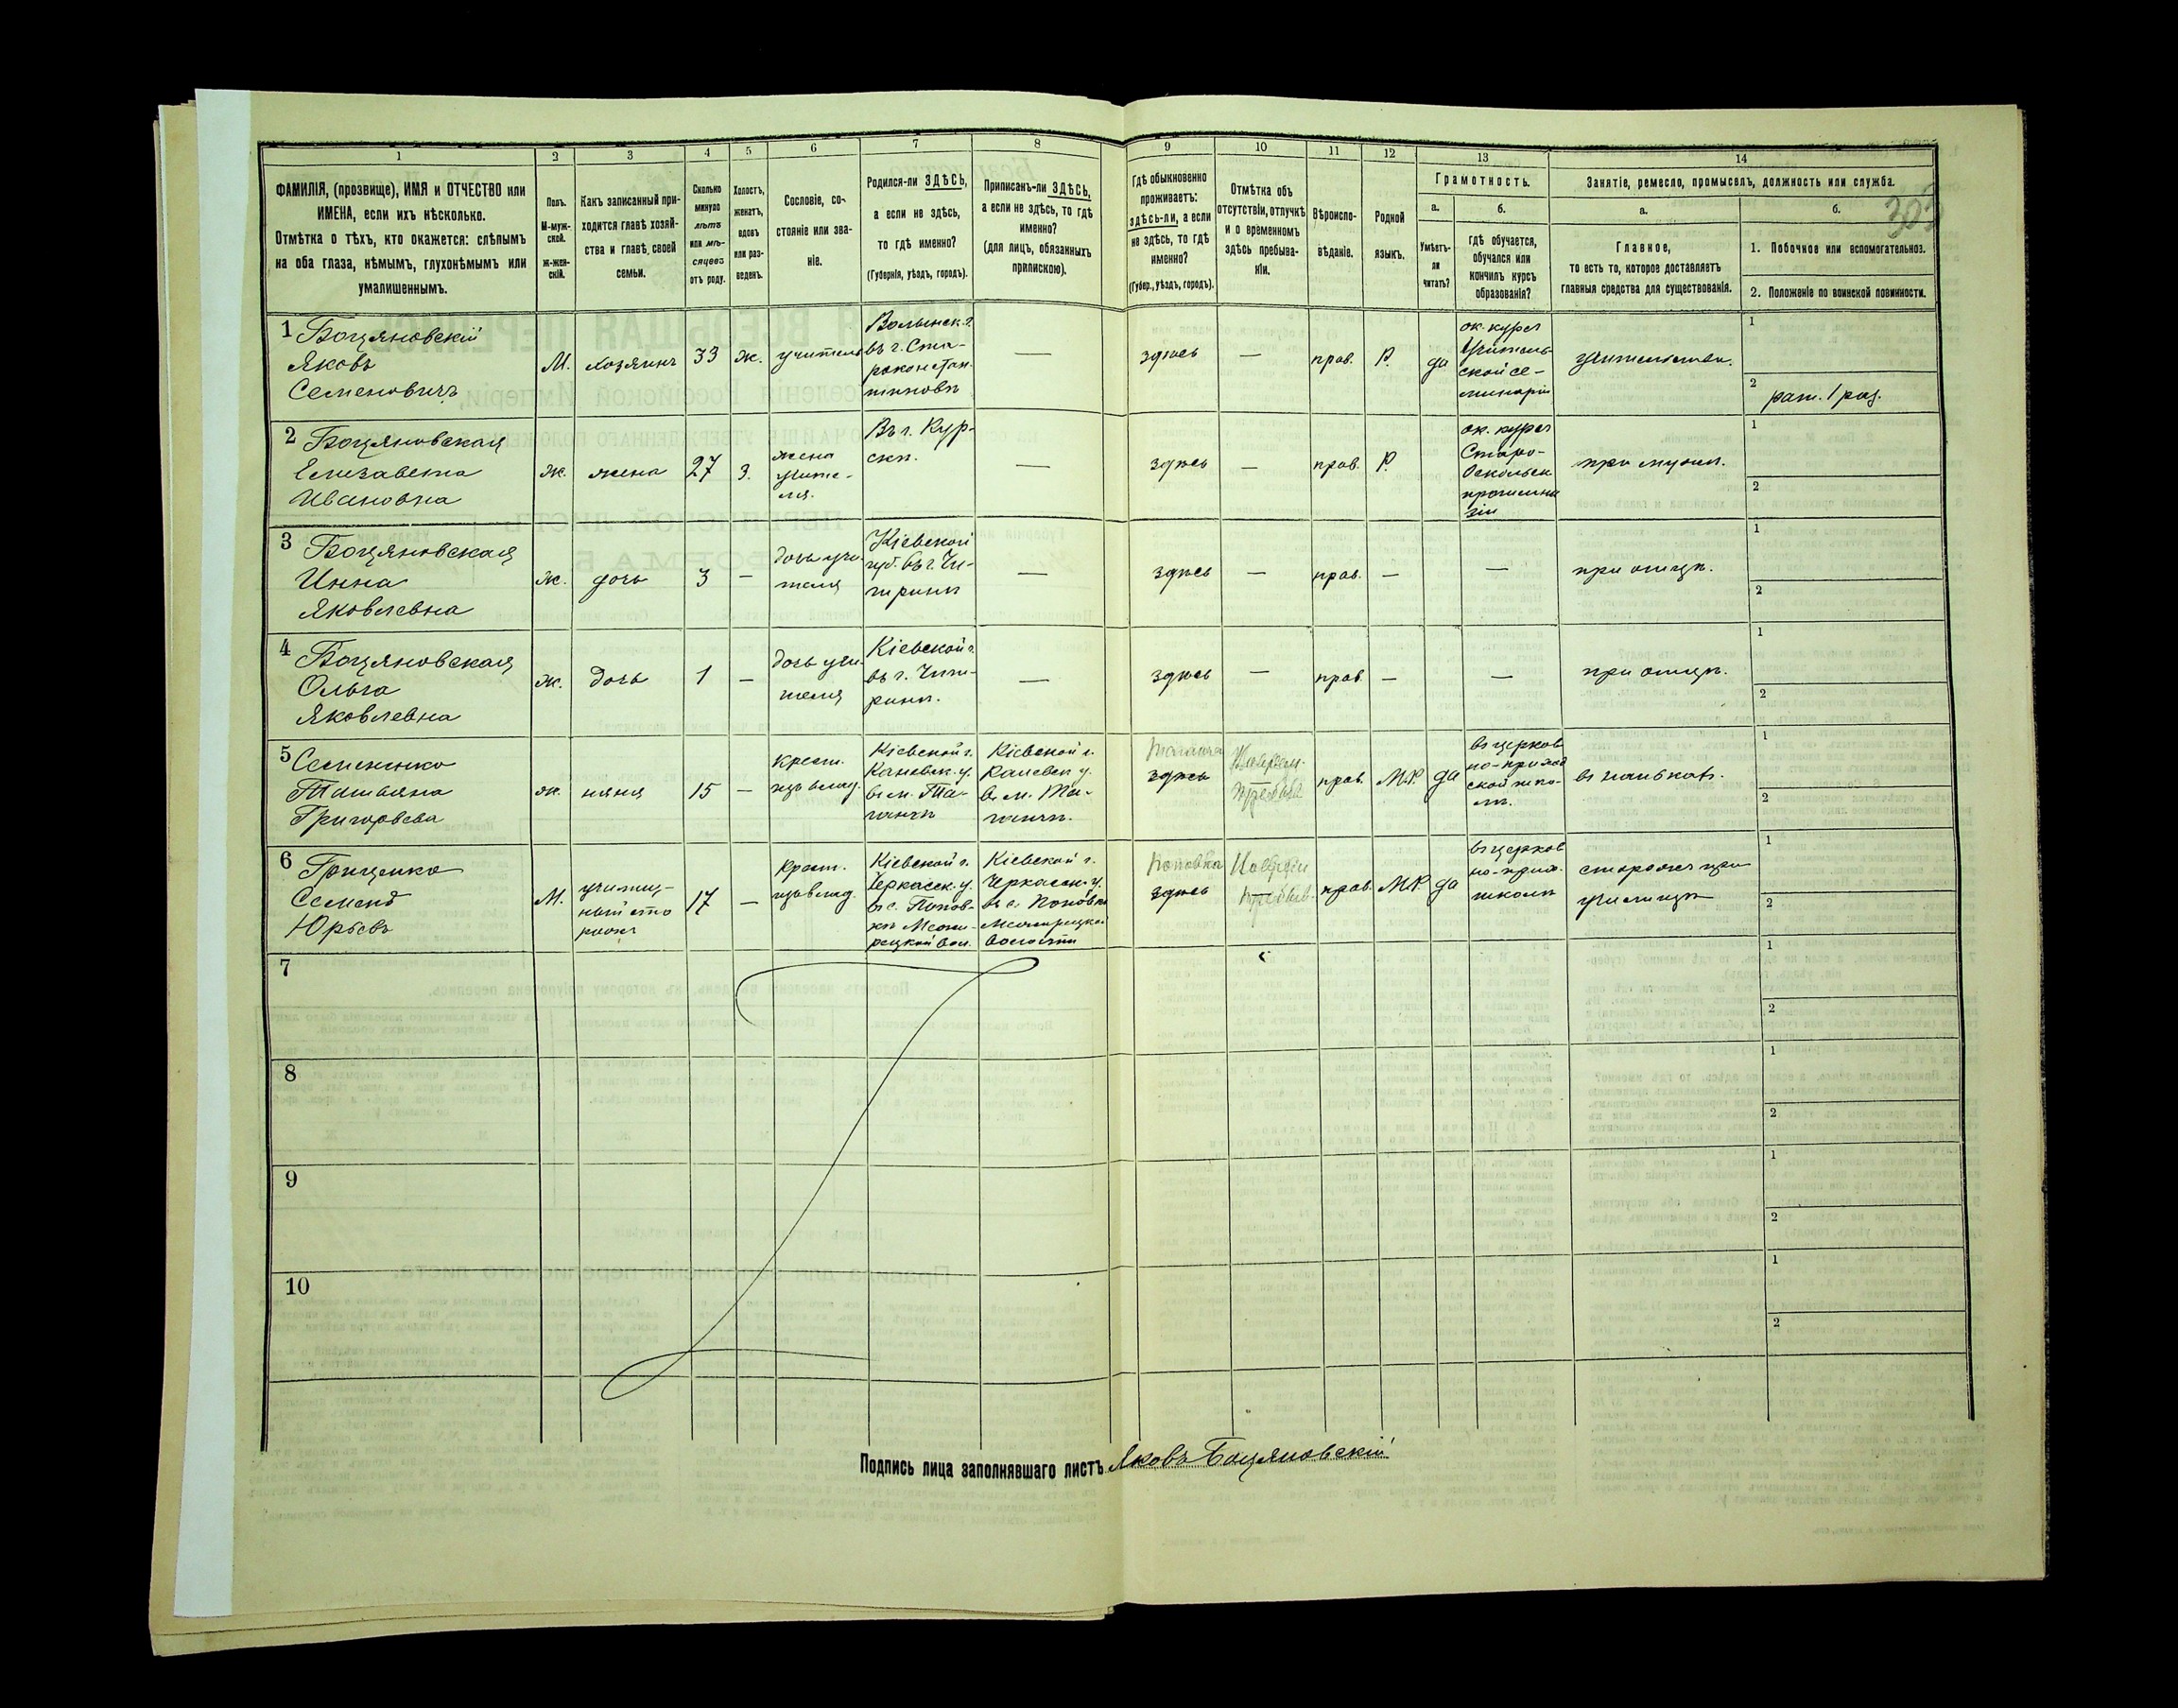 1 2 3 4 5 6 7 8 9 10 11 12 13 14
ФАМИЛІЯ, (прозвище), ИМЯ и ОТЧЕСТВО или
ИМЕНА, если ихъ нѣсколько.
Отмѣтка о тѣхъ, кто окажется: слѣпымъ
на оба глаза, нѣмымъ, глухонѣмымъ или
умалишеннымъ.
Полъ.
М-муж-
ской.
Ж-жен-
скій.
Какъ записанный при-
ходится главѣ хозяй-
ства и главѣ своей
семьи.
Сколько
минуло
лѣтъ
или мѣ-
сяцевъ
отъ роду.
Холостъ,
женатъ,
вдовъ
или раз-
веденъ.
Сословіе, со-
стояніе или зва-
ніе.
Родился-ли ЗДѢСЬ,
а если не здѣсь,
то гдѣ именно?
(Губернія, уѣздъ, городъ).
Приписанъ-ли ЗДѢСЬ,
а если не здѣсь, то гдѣ
именно?
(для лицъ, обязанныхъ
припискою).
Гдѣ обыкновенно
проживаетъ:
здѣсь-ли, а если
не здѣсь, то гдѣ
именно?
(Губер., уѣздъ, городъ).
Отмѣтка объ
отсутствіи, отлучкѣ
и о временномъ
здѣсь пребыва-
ніи.
Вѣроиспо-
вѣданіе.
Родной
языкъ.
Грамотность.
а.
Умѣетъ-
ли
читать?
б.
гдѣ обучается,
обучался или
кончилъ курсъ
образованія?
Занятіе, ремесло, промыселъ, должность или служба.
а.
Главное,
то есть то, которое доставляетъ
главныя средства для существованія.
б.
303
1. Побочное или вспомогательное.
2. Положеніе по воинской повинности.
1 Боцяновскій
Яковъ
Семеновичъ
М.
хозяинъ
33
ж.
учитель
Волынск. г.
въ г. Ста-
роконстан-
тиновѣ
—
здѣсь
—
прав.
Р.
да
ок. курсъ
Учитель
ской се-
минаріи
учительство.
1
2
рат. 1 раз.
2 Боцяновская
Елизавета
Ивановна
ж.
жена
27
З.
жена
учите-
ля.
Въ г. Кур-
скѣ.
—
здѣсь
—
прав.
Р.
ок. курсъ
Старо-
Оскольск
прогимна
зіи
при мужѣ.
1
2
3 Боцяновская
Инна
Яковлевна
ж.
дочь
3
—
дочь учи-
теля
Кіевской
губ. въ г. Чи-
гиринѣ
—
здѣсь
—
прав.
—
—
при отцѣ.
1
2
4 Боцяновская
Ольга
Яковлевна
ж.
дочь
1
—
дочь учи-
теля
Кіевской г.
въ г. Чиги-
ринѣ.
—
здѣсь
—
прав.
—
—
при отцѣ.
1
2
5 Семененко
Татьяна
Григорьева
ж.
няня
15
—
крест.
изъ влад.
Кіевской г.
Каневск. у.
въ м. Та-
ганчѣ
Кіевской г.
Каневск у.
въ м. Та-
ганчѣ.
Таганча
здѣсь
прав.
М.Р.
да
въ церков
но-приход
ской шко-
лѣ.
1
2
6 Гриценко
Семенъ
Юрьевъ
М.
училищ-
ный сто
рожъ
17
—
крест.
изъ влад.
Кіевской г.
Черкасск. у.
въ с. Попов-
кѣ Межи-
рецкой вол.
Кіевской г.
Черкасск. у.
въ с. Поповкѣ
Межирецкой
волости
Поповка
здѣсь
прав.
М.Р.
да
въ церков
но-прих.
школѣ
сторожъ при
училищѣ
1
2
7
1
2
8
1
2
9
1
2
10
1
2
Подпись лица заполнявшаго листъ Яковъ Боцяновскій